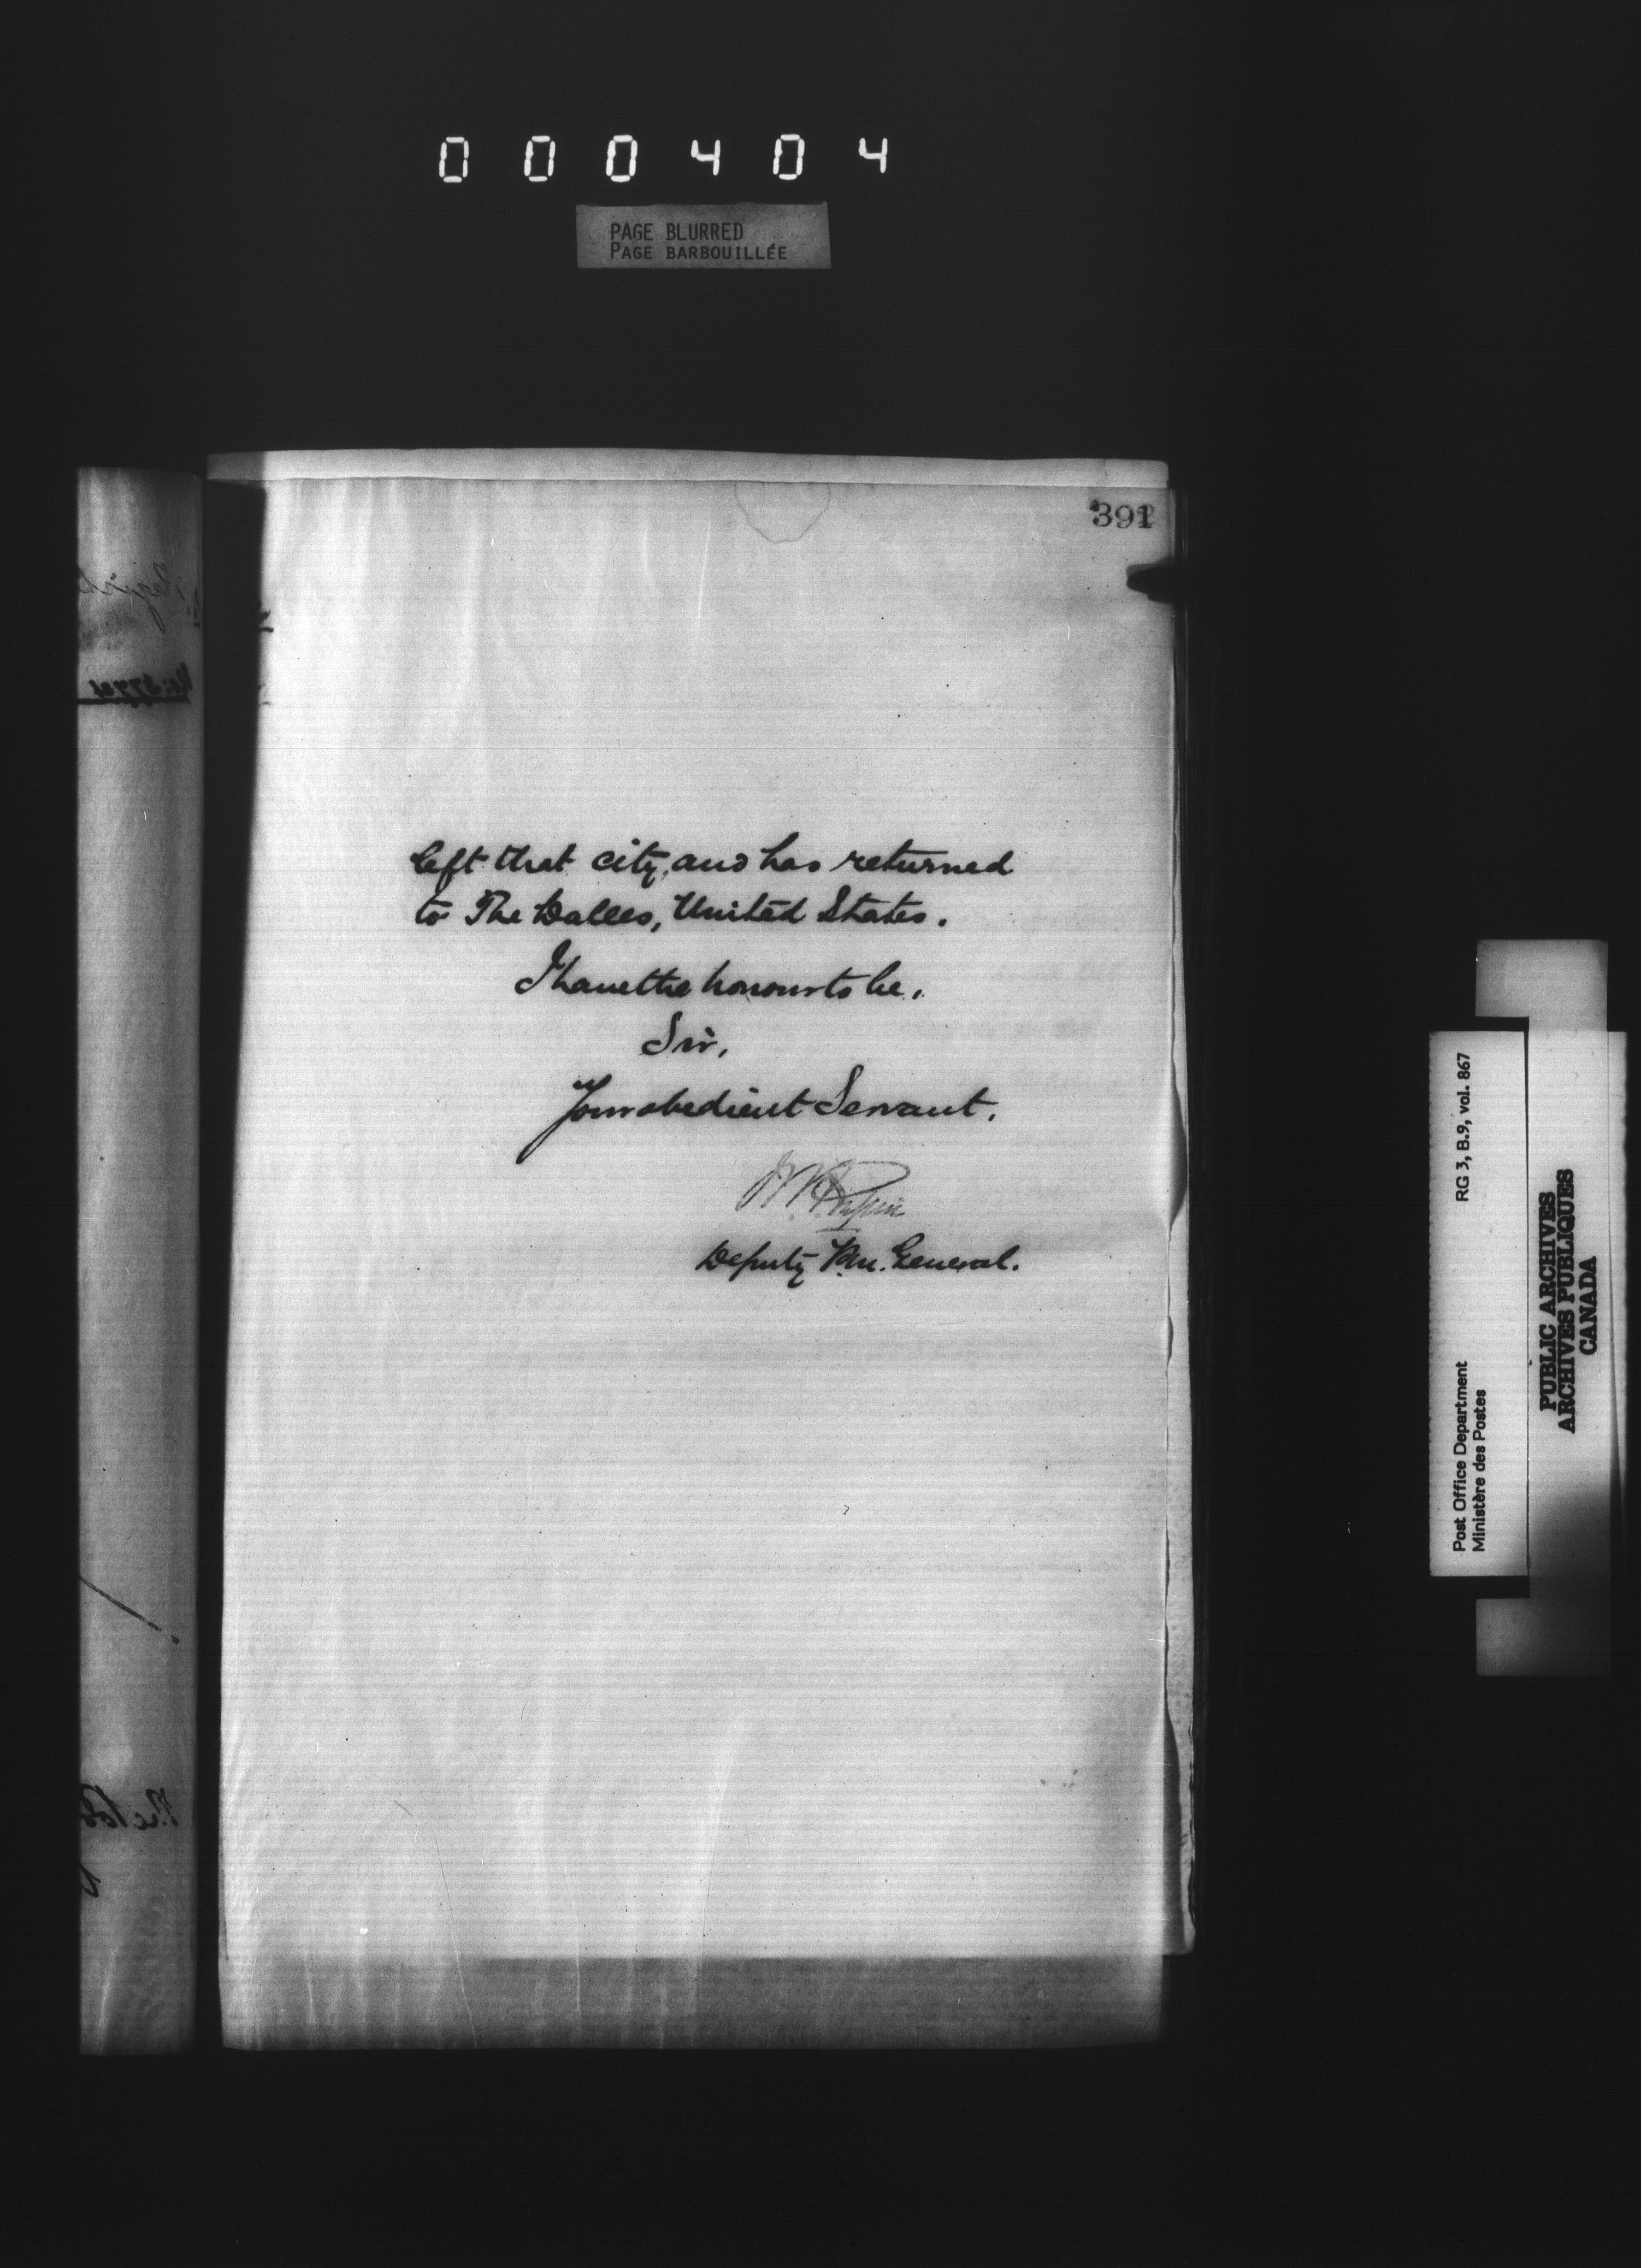 000404
PAGE BLURRED
PAGE BARBOUILLÉE
391
left that city, and has returned
to The Dalles, United States.
I have the honour to be,
Sir,
Your obedient Servant,
Deputy P.M. General.
RG 3, B.9, vol. 867
Post Office Department
Ministère des Postes
PUBLIC ARCHIVES
ARCHIVES PUBLIQUES
CANADA